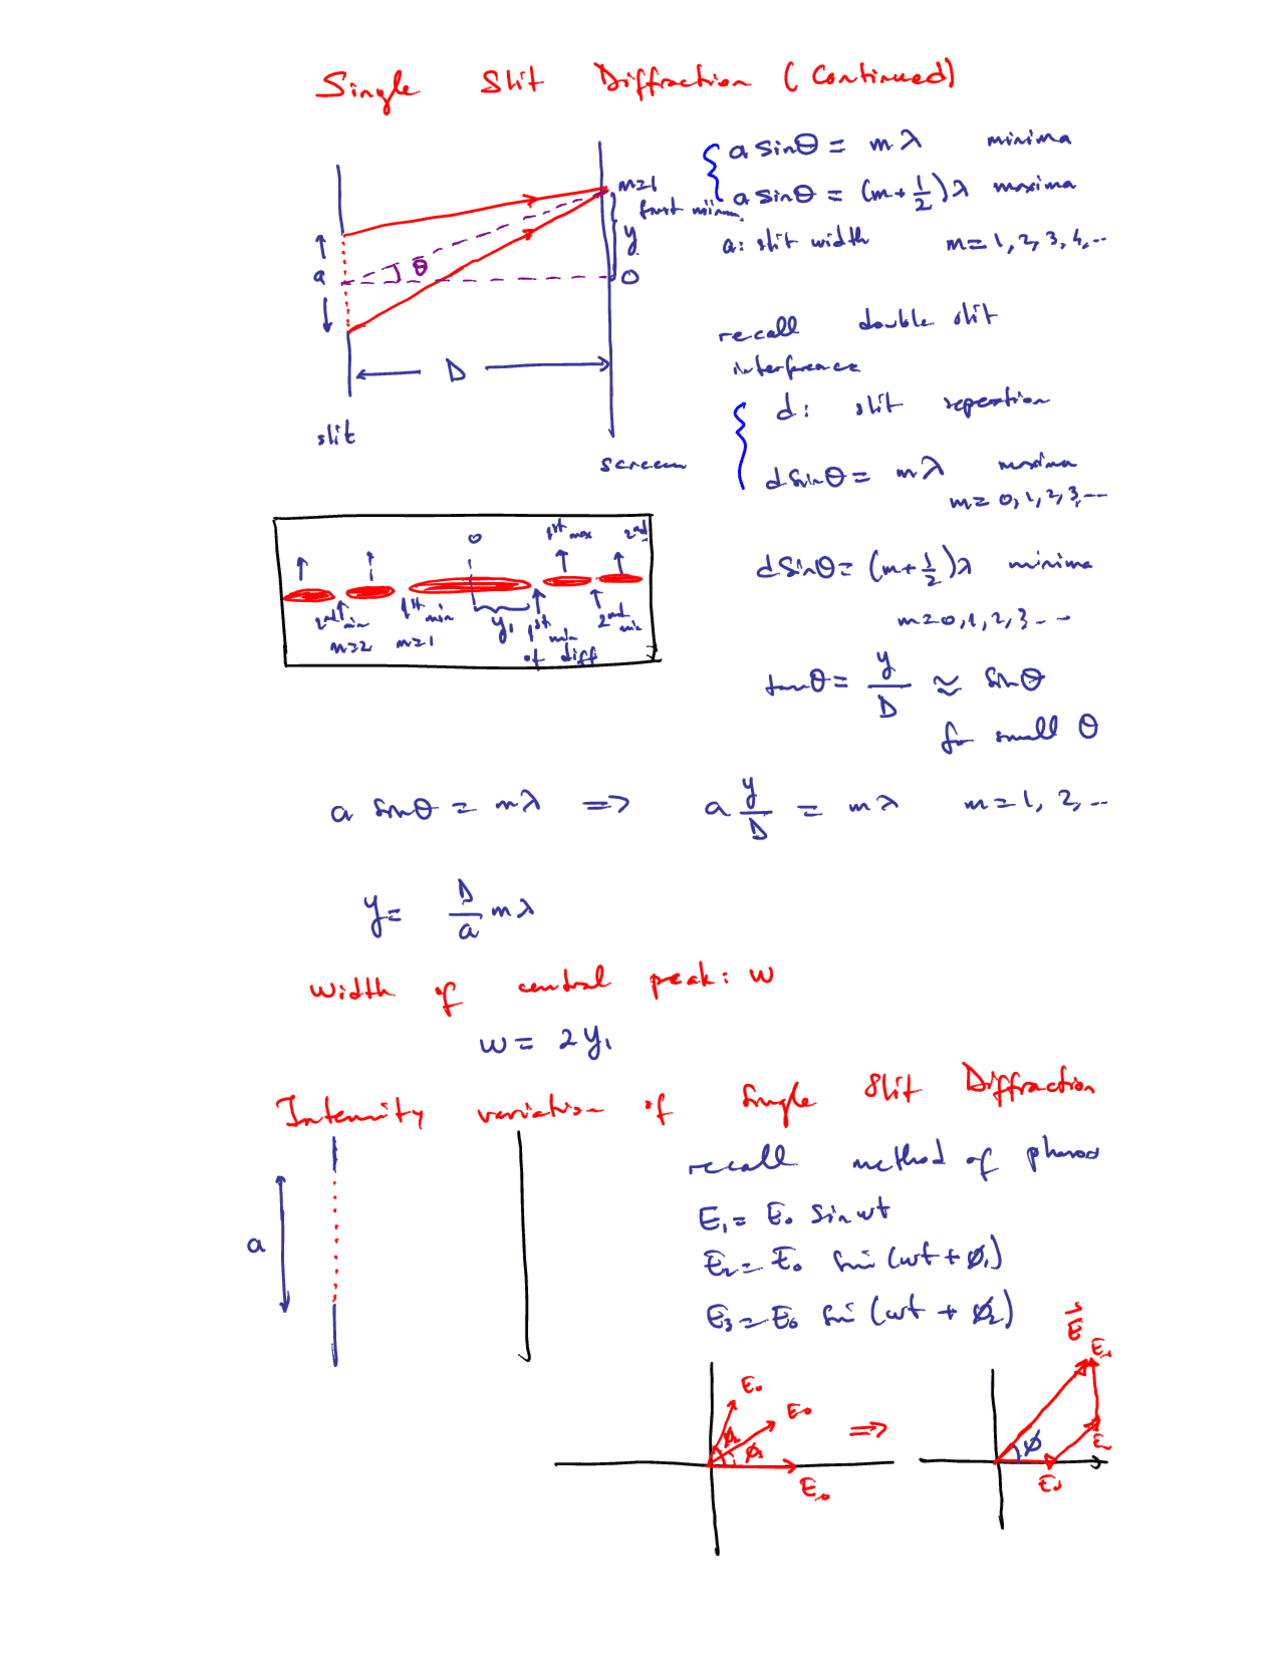 Single Slit Diffraction (Continued)
a sinθ = mλ minima
a sinθ = (m+1/2)λ maxima
a: slit width m=1,2,3,4,..
m=1
first minim.
y
θ
a
0
D
slit
screen
recall double slit
interference
d: slit seperation
d sinθ = mλ maxima
m= 0,1,2,3,--
d sinθ = (m+1/2)λ minima
m=0,1,2,3--
0 1st max 2nd
2nd min 1st min y₁ 1st min 2nd min
m=2 m=1 of diff
tanθ = y/D ≈ sinθ
for small θ
a sinθ = mλ => a y/D = mλ m=1,2,..
y= D/a mλ
Width of central peak: w
w = 2y₁
Intensity variation of Single Slit Diffraction
a
recall method of phasor
E₁ = E₀ sin ωt
E₂ = E₀ sin (ωt + φ₁)
E₃ = E₀ sin (ωt + φ₂)
E₀ E₀ φ₂ φ₁ E₀
=>
E⃗
φ E₀